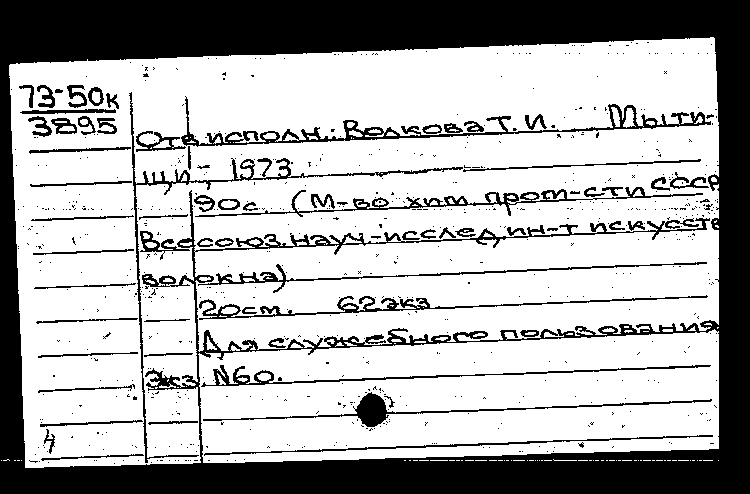 73-50к
3895
Отв. исполн.: Волкова Т. И. Мыти-
щи, 1973.
90с. (М-во хим. пром-сти СССР
Всесоюз. науч.-исслед. ин-т искусств
волокна)
20см. 62экз.
Для служебного пользования
Экз. №60.
4